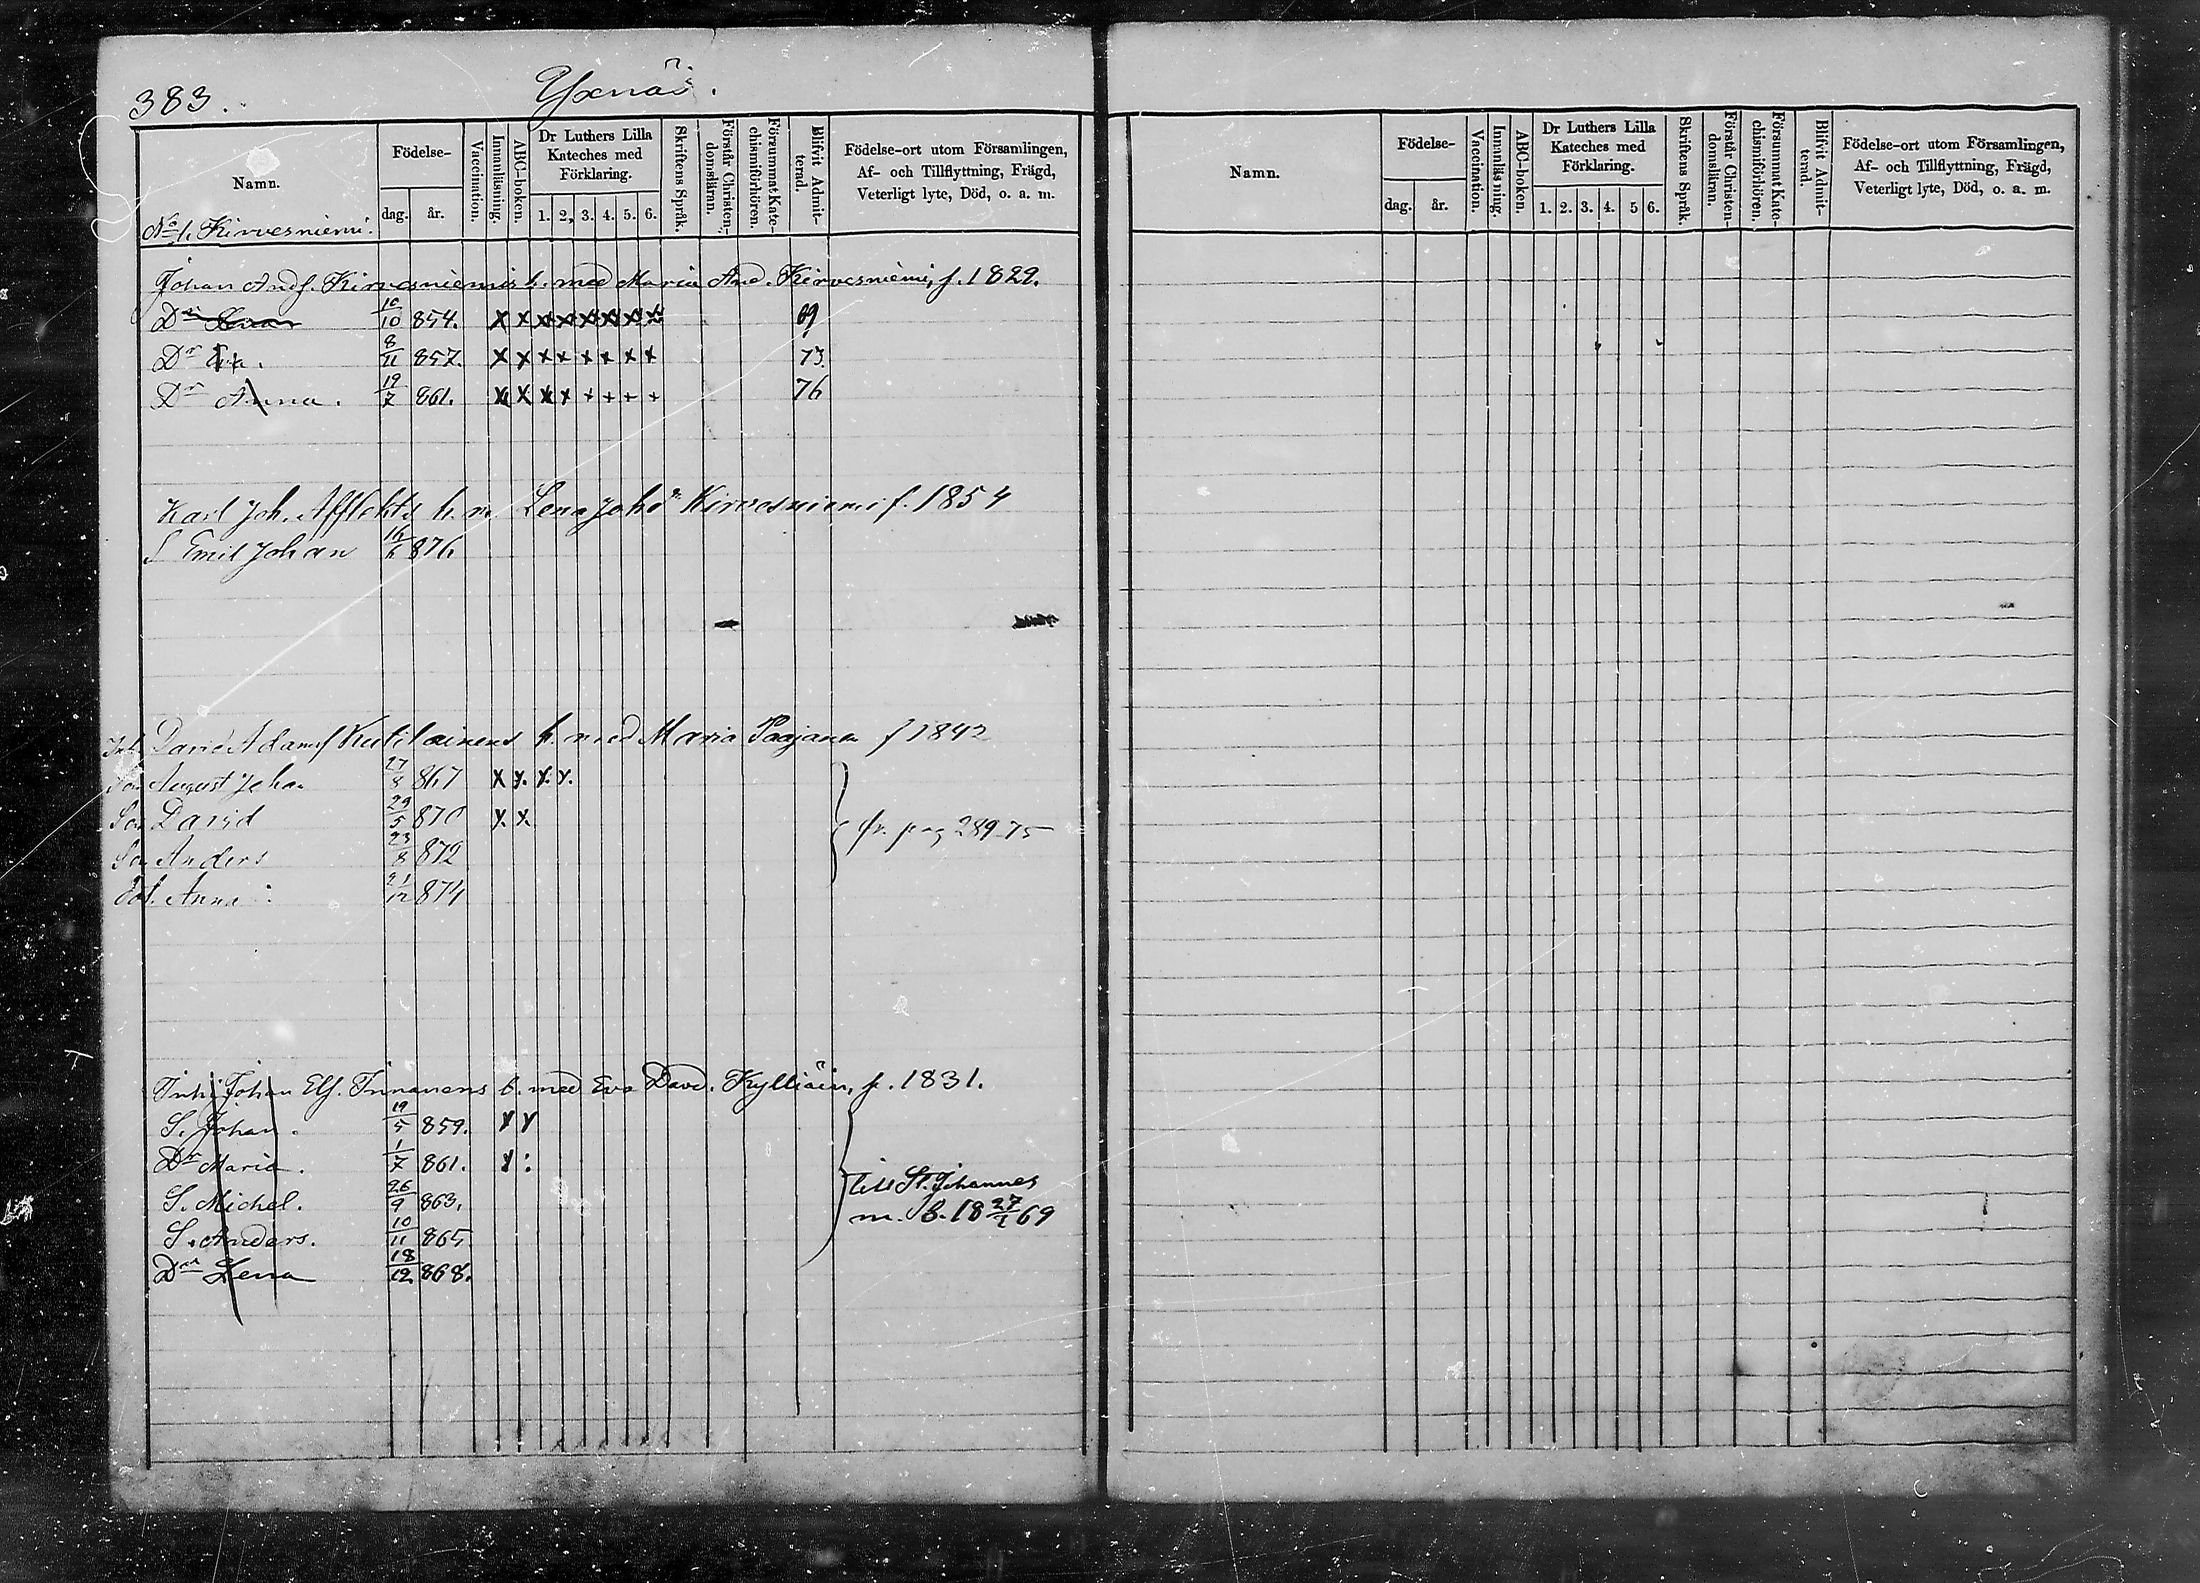 383.
Yxnäs.
Namn.
Födelse-
dag.
år.
Vaccination.
Innanläsning.
ABC-boken.
Dr Luthers Lilla
Kateches med
Förklaring.
1. 2, 3. 4. 5. 6.
Skriftens Språk.
Förstår Christen-
domslärnn.
Försummat Kate-
chismiförhören.
Blifvit Admit-
terad.
Födelse-ort utom Församlingen,
Af- och Tillflyttning, Frägd,
Veterligt lyte, Död, o. a. m.
No 1. Kirvesniemi.
Johan Andf. Kirvesniemis h. med Maria And. Kirvesniemi, f. 1829.
Dr Lena 10/10 854. x x x x x x x x 69
Dr Eva. 8/11 857. x x x x x x x x 73.
Dr Anna. 19/7 861. x x x x + + + + 76
Karl Joh. Afflekts h. m. Lena Johsr Kirvesniemi f. 1854
S Emil Johan 16/6 876
Inh David Adamsf Kutilainens h. med Maria Paajanen f 1842
Son August Johan 27/8 867 x x. x. x.
Son David 29/5 870 x. x.
Son Anders 23/8 872
fr. pag 289 75
Dot. Anna 21/12 874
Inh: Johan Elf. Innanens h. med Eva David. Kylliäin, f. 1831.
S. Johan. 19/5 859. x x
Dr Maria. 1/7 861. x :
S. Michel. 26/9 863.
till St. Johannes
m. b. 18 27/1 69
S. Anders. 10/11 865
Dr Lena 18/12 868.
Namn.
Födelse-
dag.
år.
Vaccination.
Innanläsning.
ABC-boken.
Dr Luthers Lilla
Kateches med
Förklaring.
1. 2. 3. 4. 5 6.
Skriftens Språk.
Förstår Christen-
domsläran.
Försummat Kate-
chismiförhören.
Blifvit Admit-
terad.
Födelse-ort utom Församlingen,
Af- och Tillflyttning, Frägd,
Veterligt lyte, Död, o. a. m.